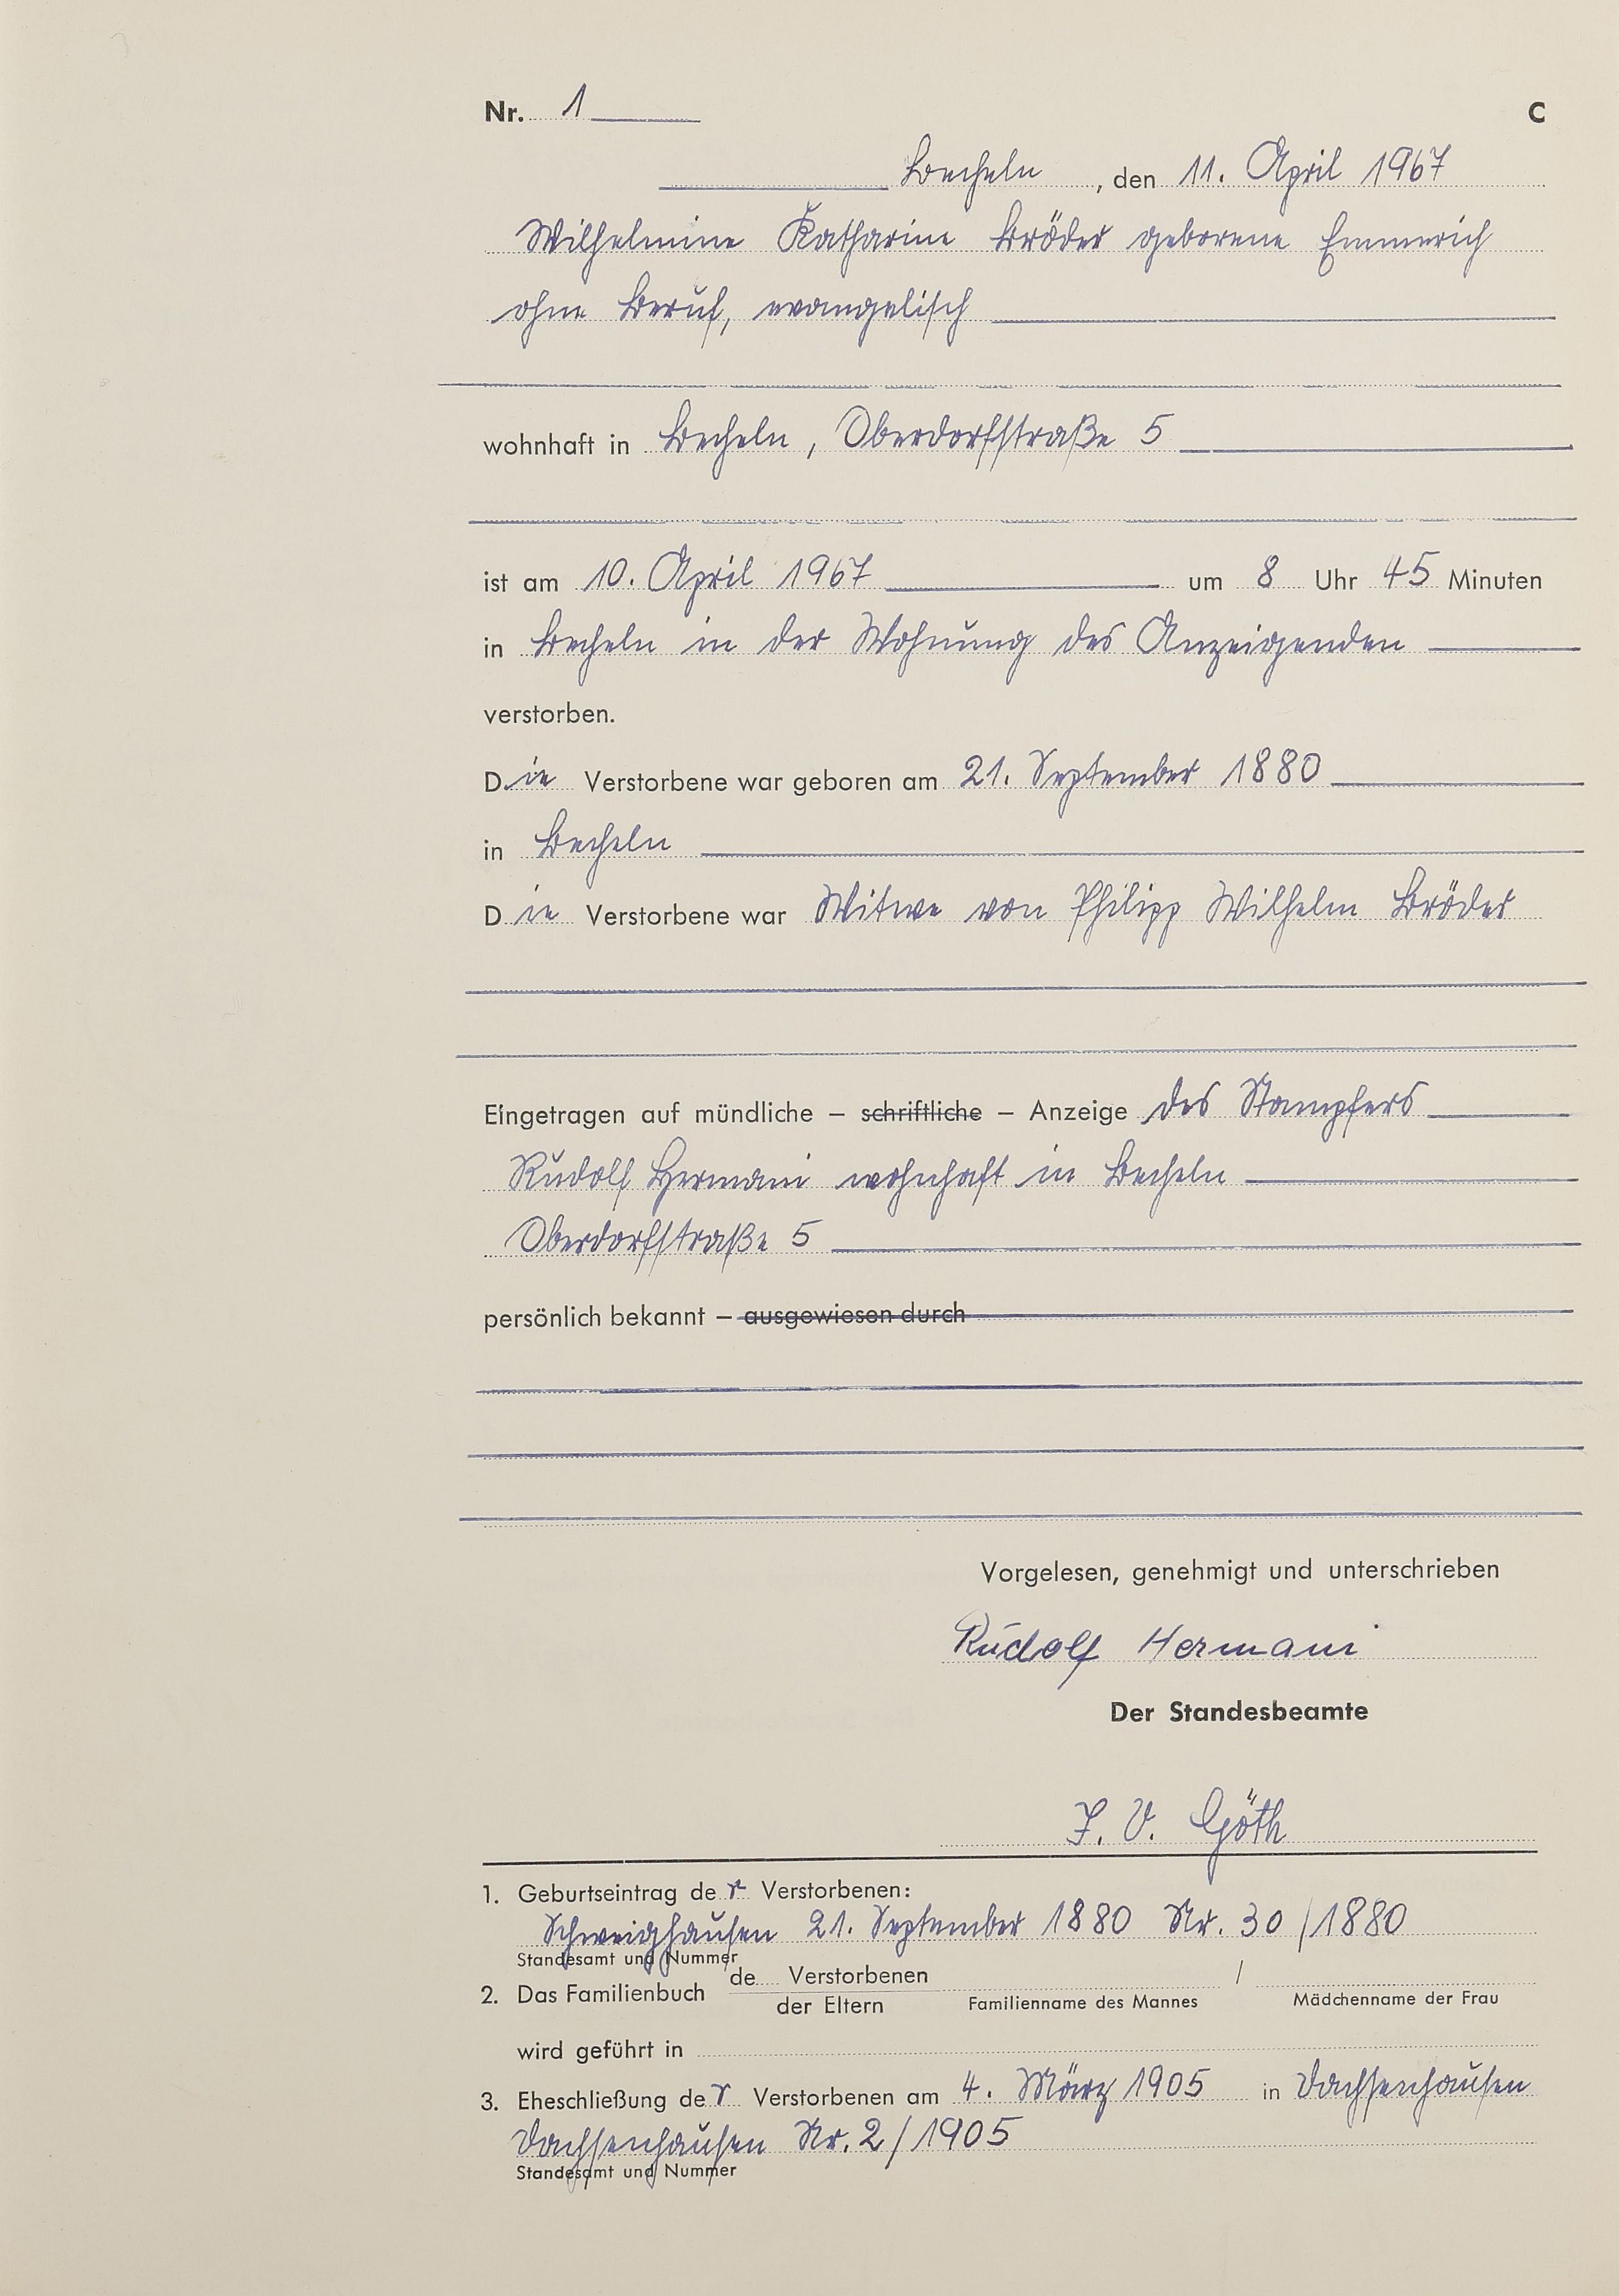 Nr. 1
C
Becheln, den 11. April 1967
Wilhelmine Katharine Bröder geborene Emmerich
ohne Beruf, evangelisch
wohnhaft in Becheln, Oberdorfstraße 5
ist am 10. April 1967 um 8 Uhr 45 Minuten
in Becheln in der Wohnung des Anzeigenden
verstorben.
Die Verstorbene war geboren am 21. September 1880
in Becheln
Die Verstorbene war Witwe von Philipp Wilhelm Bröder
Eingetragen auf mündliche – schriftliche – Anzeige des Stampfers
Rudolf Hermani wohnhaft in Becheln
Oberdorfstraße 5
persönlich bekannt – ausgewiesen durch
Vorgelesen, genehmigt und unterschrieben
Rudolf Hermani
Der Standesbeamte
J. V. Göth
1. Geburtseintrag der Verstorbenen:
Schweighausen 21. September 1880 Nr. 30/1880
Standesamt und Nummer
2. Das Familienbuch de Verstorbenen /
der Eltern Familienname des Mannes Mädchenname der Frau
wird geführt in
3. Eheschließung der Verstorbenen am 4. März 1905 in Dachsenhausen
Dachsenhausen Nr. 2/1905
Standesamt und Nummer